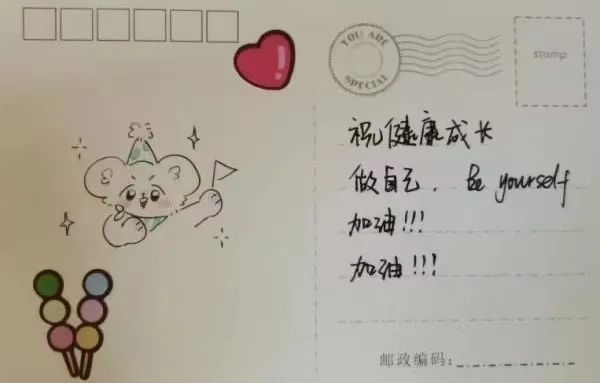 YOU ARE
SPECIAL
stamp
祝健康成长
做自己，Be yourself
加油!!!
加油!!!
邮政编码: